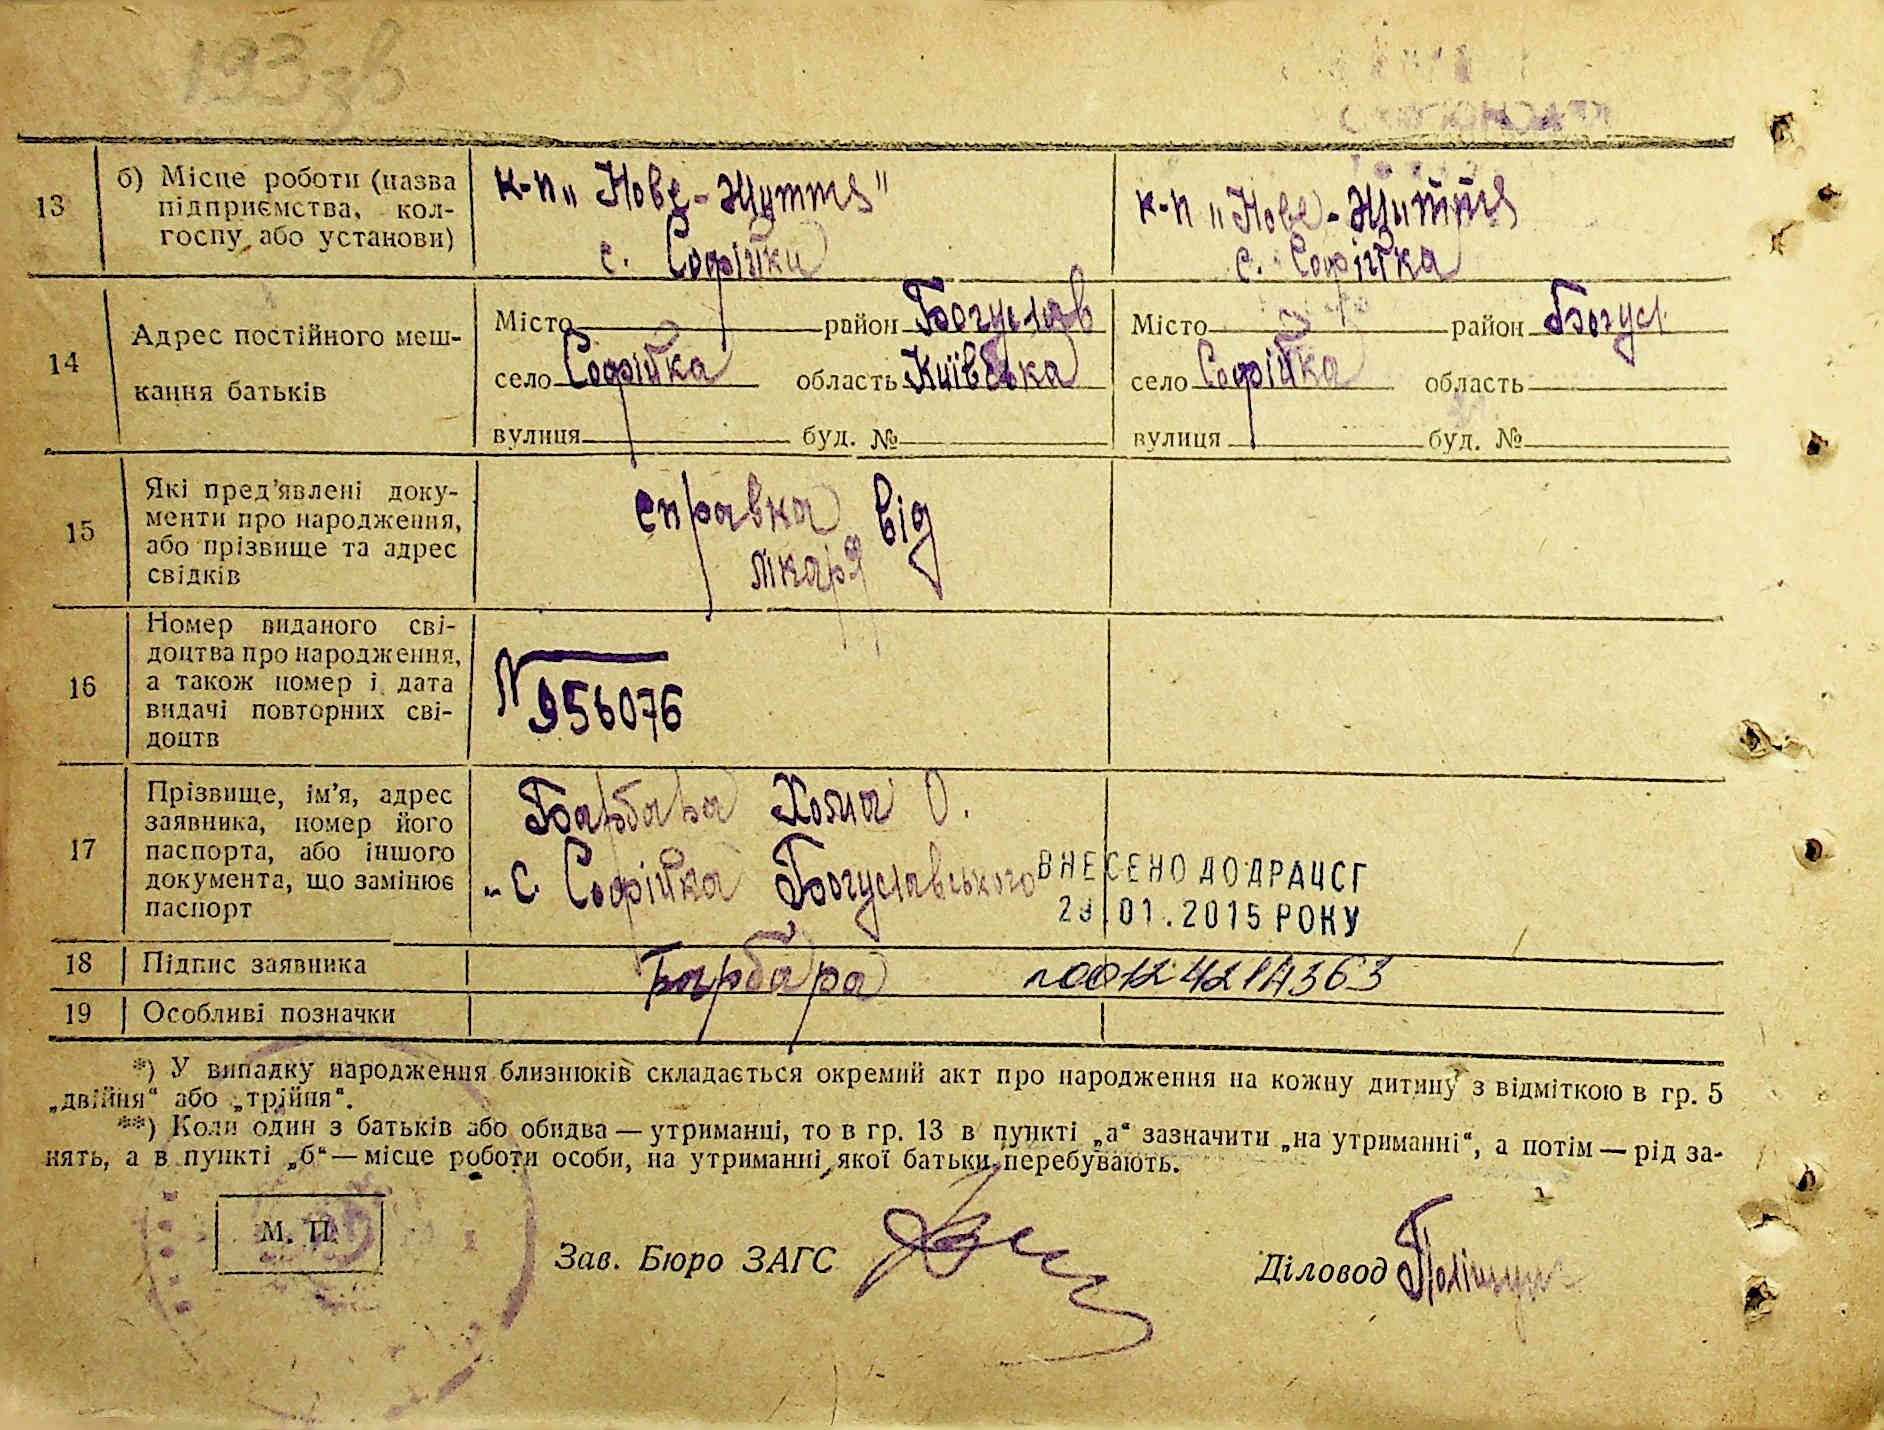 193 зв
13 б) Місце роботи (назва підприємства, колгоспу, або установи)
к-п „Нове-Життя"
с. Софійки
к-п „Нове-Життя
с. Софійка
14 Адрес постійного мешкання батьків
Місто район Богуслав
село Софійка область Київська
вулиця буд. №
Місто район Богусл
село Софійка область
вулиця буд. №
15 Які пред'явлені документи про народження, або прізвище та адрес свідків
справка від
лікаря
16 Номер виданого свідоцтва про народження, а також номер і дата видачі повторних свідоцтв
N 956076
17 Прізвище, ім'я, адрес заявника, номер його паспорта, або іншого документа, що замінює паспорт
Барбара Хома О.
с. Софійка Богуславського
ВНЕСЕНО ДО ДРАЦСГ
01.2015 РОКУ
18 Підпис заявника
Барбара
00124214363
19 Особливі позначки
*) У випадку народження близнюків складається окремий акт про народження на кожну дитину з відміткою в гр. 5
„двійня“ або „трійня“.
**) Коли один з батьків або обидва — утриманці, то в гр. 13 в пункті „а“ зазначити „на утриманні“, а потім — рід за-
нять, а в пункті „б“ — місце роботи особи, на утриманні якої батьки перебувають.
М. П.
Зав. Бюро ЗАГС
Діловод Поліщук